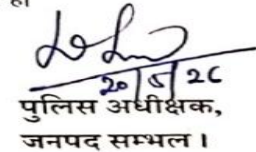 20/5/26
पुलिस अधीक्षक,
जनपद सम्भल।